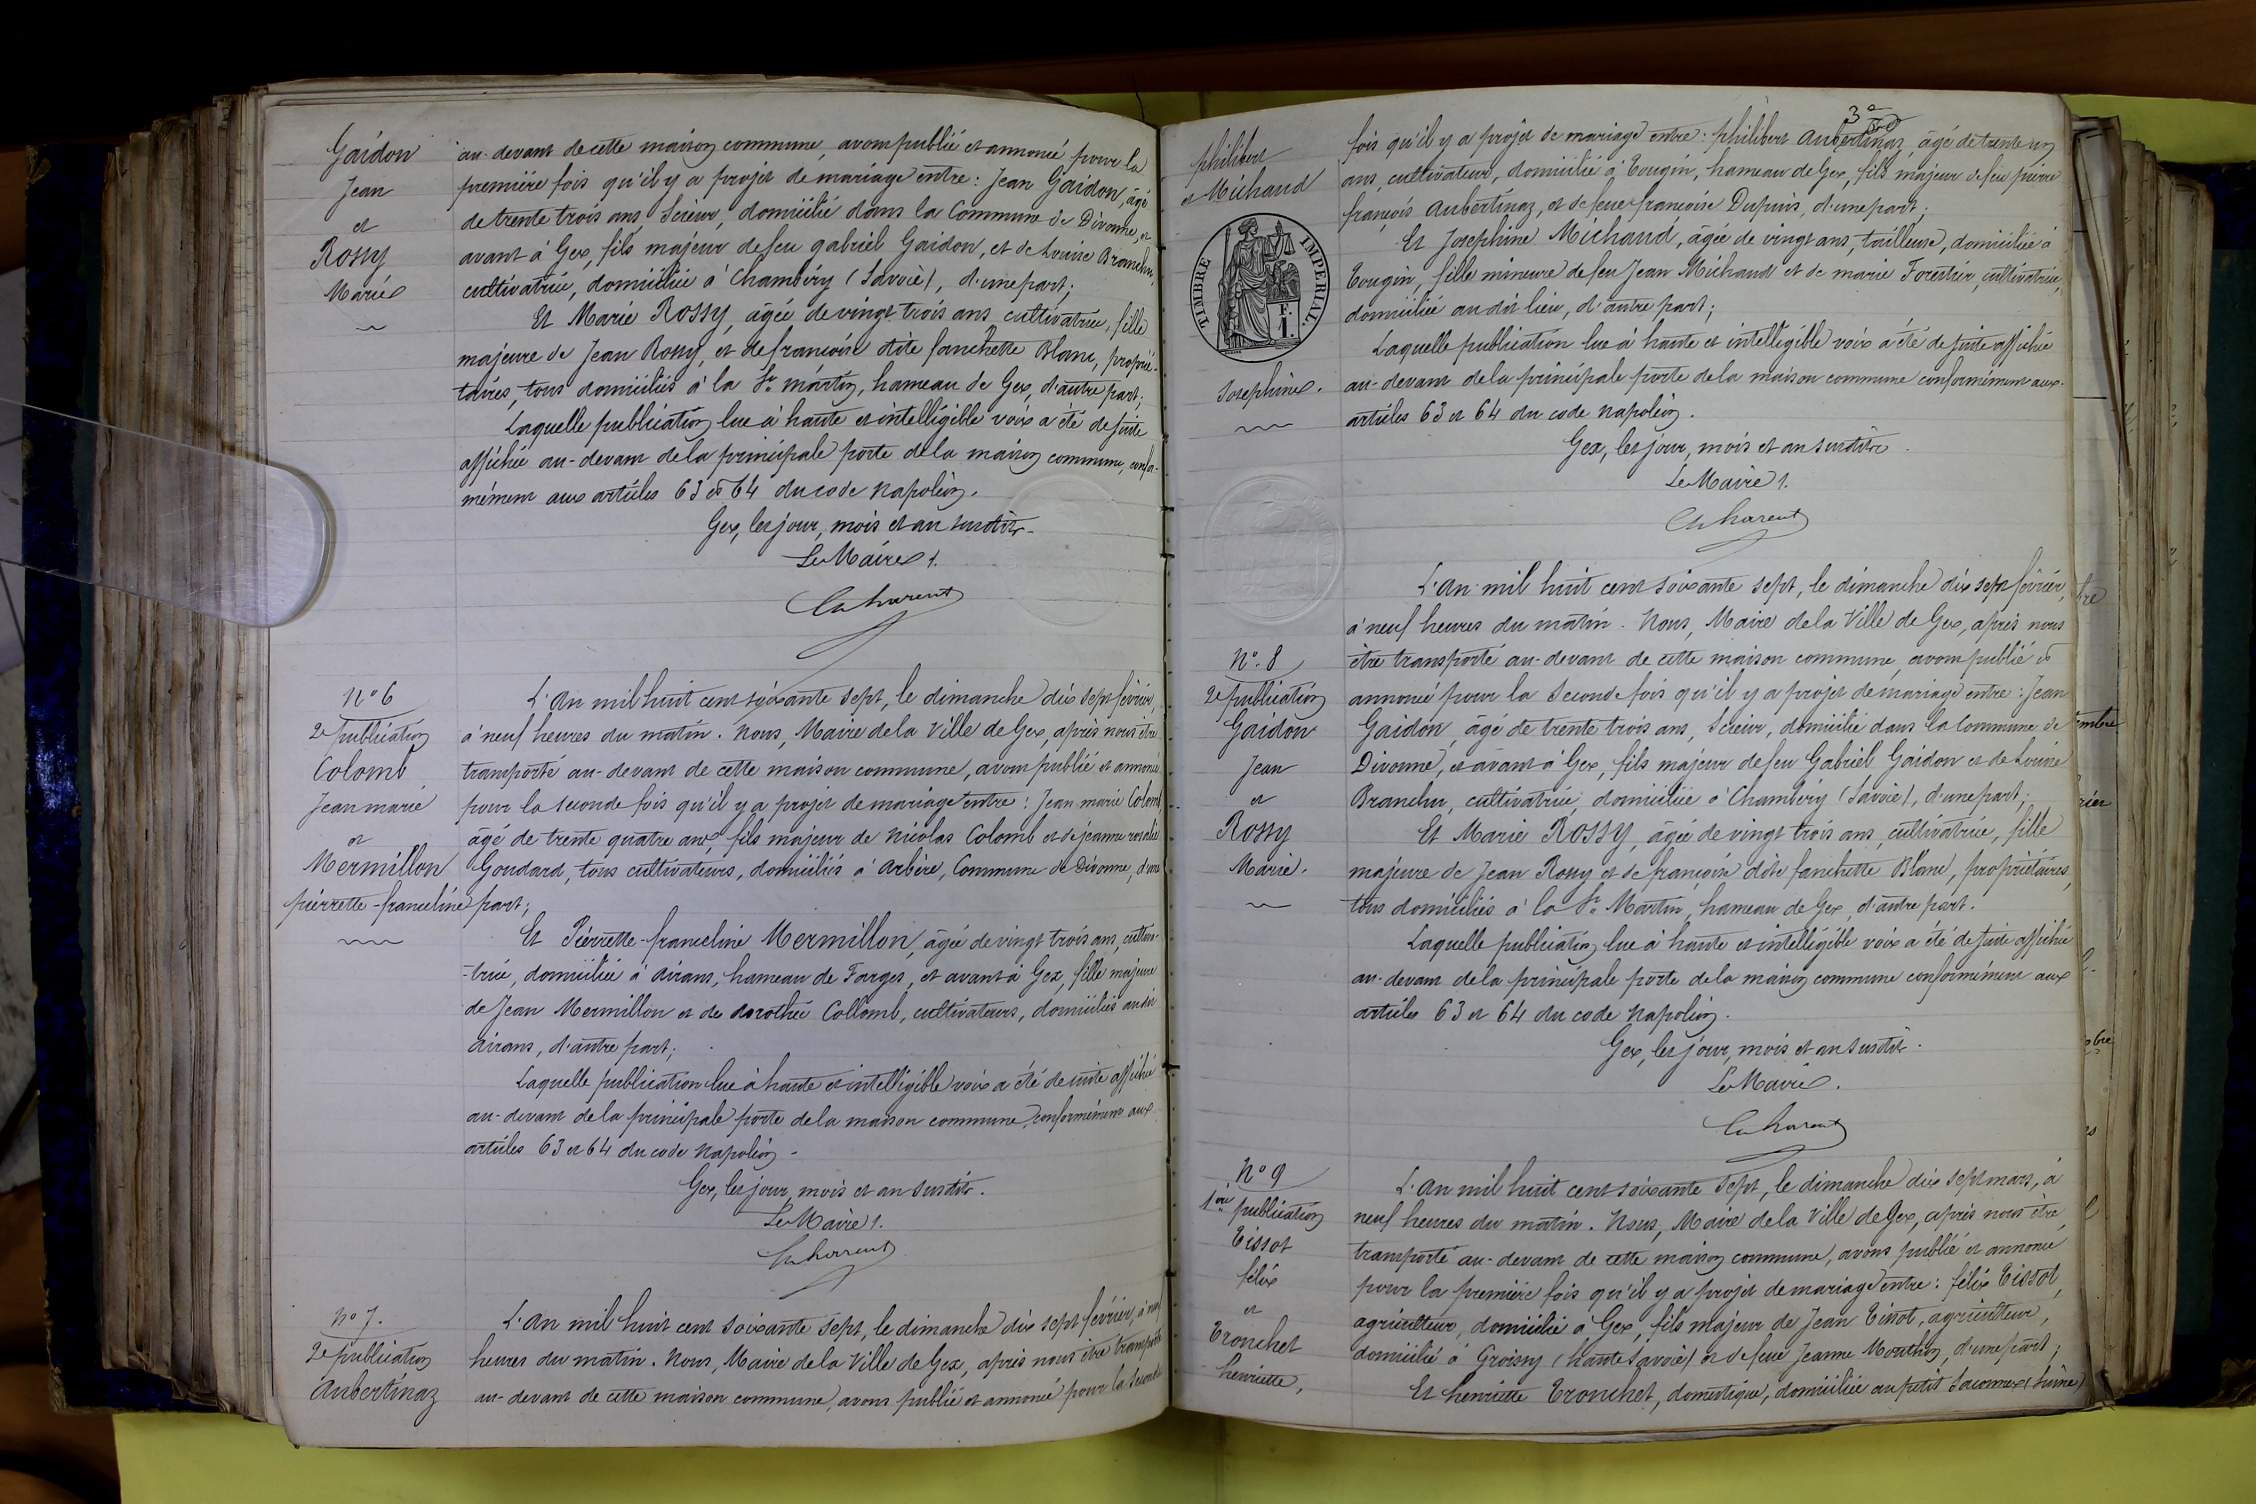 Gaidon
Jean
et
Rossy
Marie
au-devant de cette maison commune, avons publié et annoncé pour la
première fois qu'il y a projet de mariage entre : Jean Gaidon, âgé
de trente trois ans, Scieur, domicilié dans la Commune de Divonne, et
avant à Gex, fils majeur de feu gabriel Gaidon, et de Louise Branchu,
cultivatrice, domiciliée à Chambéry (Savoie), d'une part;
Et Marie Rossy, âgée de vingt trois ans, cultivatrice, fille
majeure de Jean Rossy, et de françoise dite fanchette Blanc, proprié-
taires, tous domiciliés à la St. Martin, hameau de Gex, d'autre part;
Laquelle publication lue à haute et intelligible voix a été de suite
affichée au-devant de la principale porte de la maison commune, confor-
mément aux articles 63 et 64 du code Napoléon.
Gex, les jour, mois et an susdits.
Le Maire 1.
N° 6
2e publication
Colomb
Jean marie
et
Mermillon
pierrette-franceline
L'An mil huit cent soixante sept, le dimanche dix sept février,
à neuf heures du matin. Nous, Maire de la Ville de Gex, après nous être
transporté au-devant de cette maison commune, avons publié et annoncé
pour la seconde fois qu'il y a projet de mariage entre : Jean marie Colomb
âgé de trente quatre ans, fils majeur de Nicolas Colomb et de jeanne rosalie
Goudard, tous cultivateurs, domiciliés à Arbère, Commune de Divonne, d'une
part;
Et Pierrette-franceline Mermillon, âgée de vingt trois ans, cultiva-
-trice, domiciliée à Airans, hameau de Farges, et avant à Gex, fille majeure
de Jean Mermillon et de dorothée Collomb, cultivateurs, domiciliés au dit
Airans, d'autre part;
Laquelle publication lue à haute et intelligible voix a été de suite affichée
au-devant de la principale porte de la maison commune, conformément aux
articles 63 et 64 du code Napoléon.
Gex, les jour, mois et an susdits.
Le Maire 1.
N° 7.
2e publication
Aubertinaz
L'An mil huit cent soixante sept, le dimanche dix sept février, à neuf
heures du matin. Nous, Maire de la Ville de Gex, après nous être transporté
au-devant de cette maison commune, avons publié et annoncé pour la seconde
3e
philibert
et Michaud
TIMBRE IMPERIAL.
F.
1.
Josephine.
fois qu'il y a projet de mariage entre : philibert Aubertinaz, âgé de trente un
ans, cultivateur, domicilié à Tougin, hameau de Gex, fils majeur de feu pierre
françois Aubertinaz, et de feue françoise Dupuis, d'une part;
Et Josephine Michaud, âgée de vingt ans, tailleuse, domiciliée à
Tougin, fille mineure de feu Jean Michaud et de marie Forestier, cultivatrice,
domiciliée au dit lieu, d'autre part;
Laquelle publication lue à haute et intelligible voix a été de suite affichée
au-devant de la principale porte de la maison commune conformément aux
articles 63 et 64 du code Napoléon.
Gex, les jour, mois et an susdits.
Le Maire 1.
N°. 8
2e publication
Gaidon
Jean
et
Rossy
Marie.
L'An mil huit cent soixante sept, le dimanche dix sept février,
à neuf heures du matin. Nous, Maire de la Ville de Gex, après nous
être transporté au-devant de cette maison commune, avons publié et
annoncé pour la seconde fois qu'il y a projet de mariage entre : Jean
Gaidon, âgé de trente trois ans, Scieur, domicilié dans la Commune de
Divonne, et avant à Gex, fils majeur de feu Gabriel Gaidon et de Louise
Branchu, cultivatrice, domiciliée à Chambéry (Savoie), d'une part;
Et Marie Rossy, âgée de vingt trois ans, cultivatrice, fille
majeure de Jean Rossy et de françoise dite fanchette Blanc, propriétaires,
tous domiciliés à la St. Martin, hameau de Gex, d'autre part.
Laquelle publication lue à haute et intelligible voix a été de suite affichée
au-devant de la principale porte de la maison commune conformément aux
articles 63 et 64 du code Napoléon.
Gex, les jour, mois et an susdits.
Le Maire.
N° 9
1ère publication
Tissot
félix
et
Tronchet
henriette,
L'An mil huit cent soixante sept, le dimanche dix sept mars, à
neuf heures du matin. Nous, Maire de la Ville de Gex, après nous être
transporté au-devant de cette maison commune, avons publié et annoncé
pour la première fois qu'il y a projet de mariage entre : félix Tissot,
agriculteur, domicilié à Gex, fils majeur de Jean Tissot, agriculteur,
domicilié à Groisy (haute Savoie) et de feue Jeanne Monthoz, d'une part;
Et henriette Tronchet, domestique, domiciliée au petit Saconnex (Suisse)